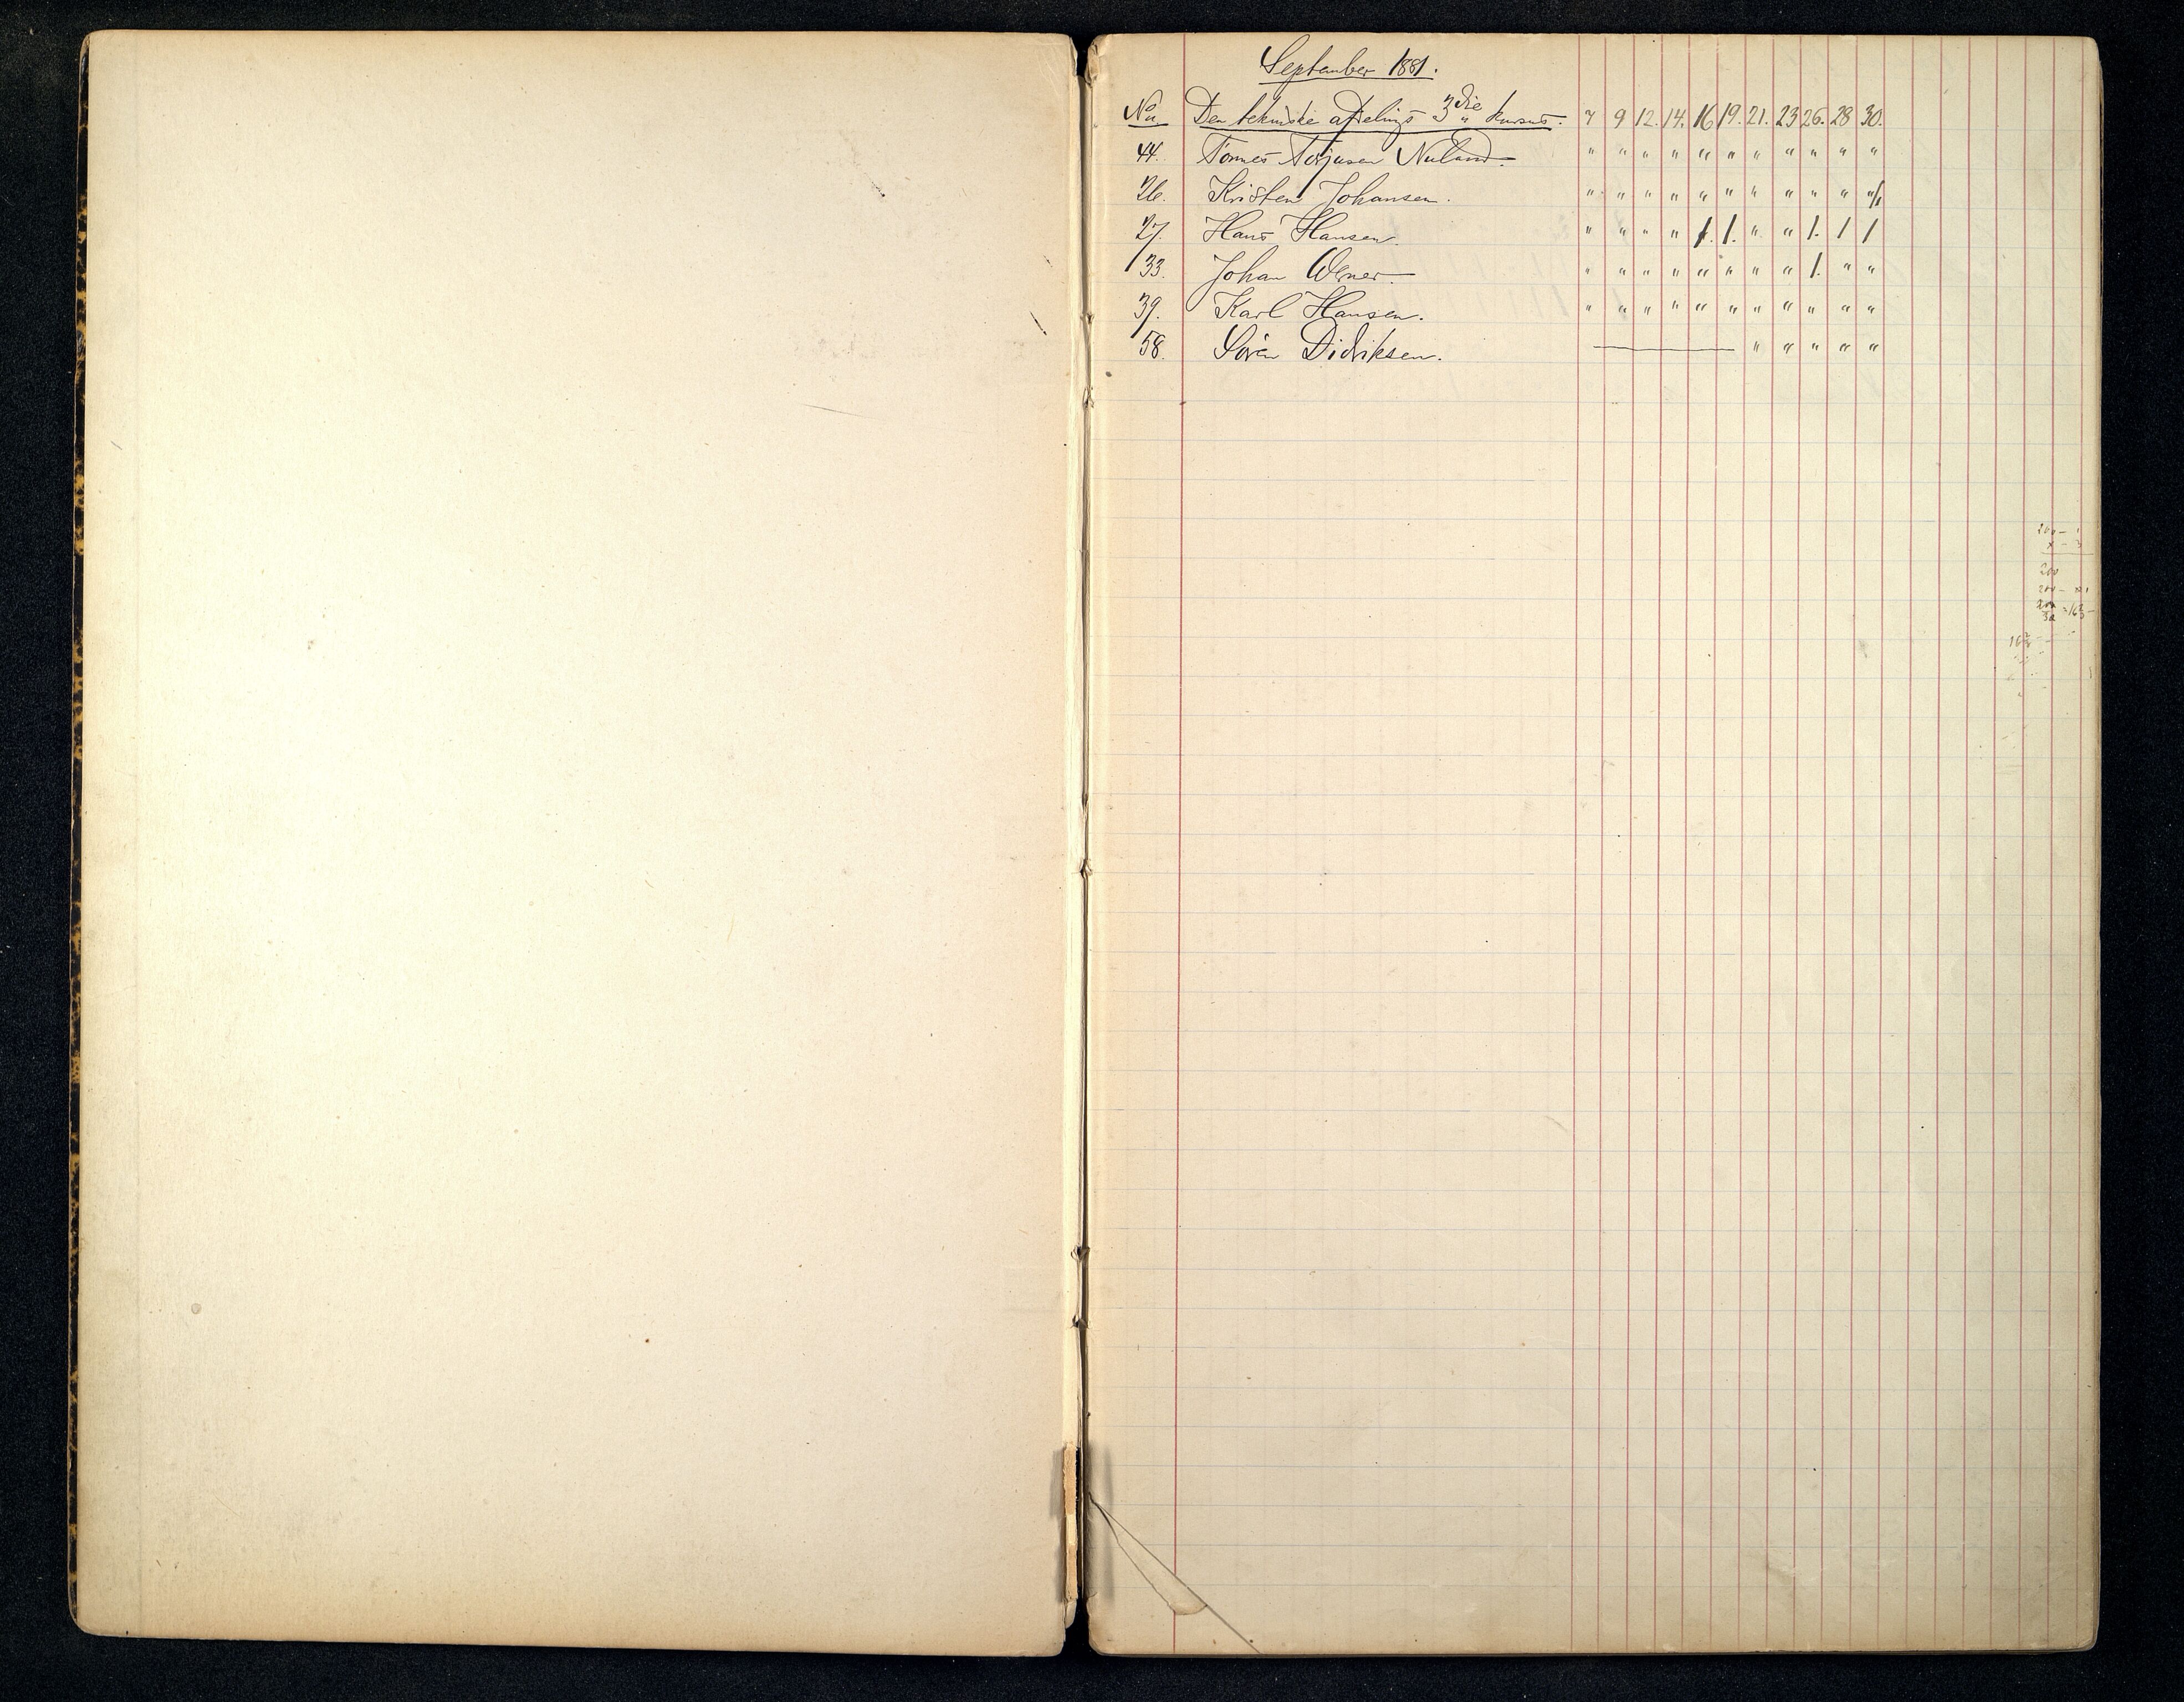 September 1881.
No. Den tekniske afdelings 3die kursus. 7 9 12. 14. 16 19. 21. 23 26. 28 30.
44. Tønnes Torjusen Nuland. " " " " " " " " " " "
26. Kristen Johansen. " " " " " " " " " " "/1
27. Hans Hansen. " " " " 1. 1. " " 1. 1 1
33. Johan Werner. " " " " " " " " 1. " "
39. Karl Hansen. " " " " " " " " " " "
58. Søren Didriksen. — " " " " "
200